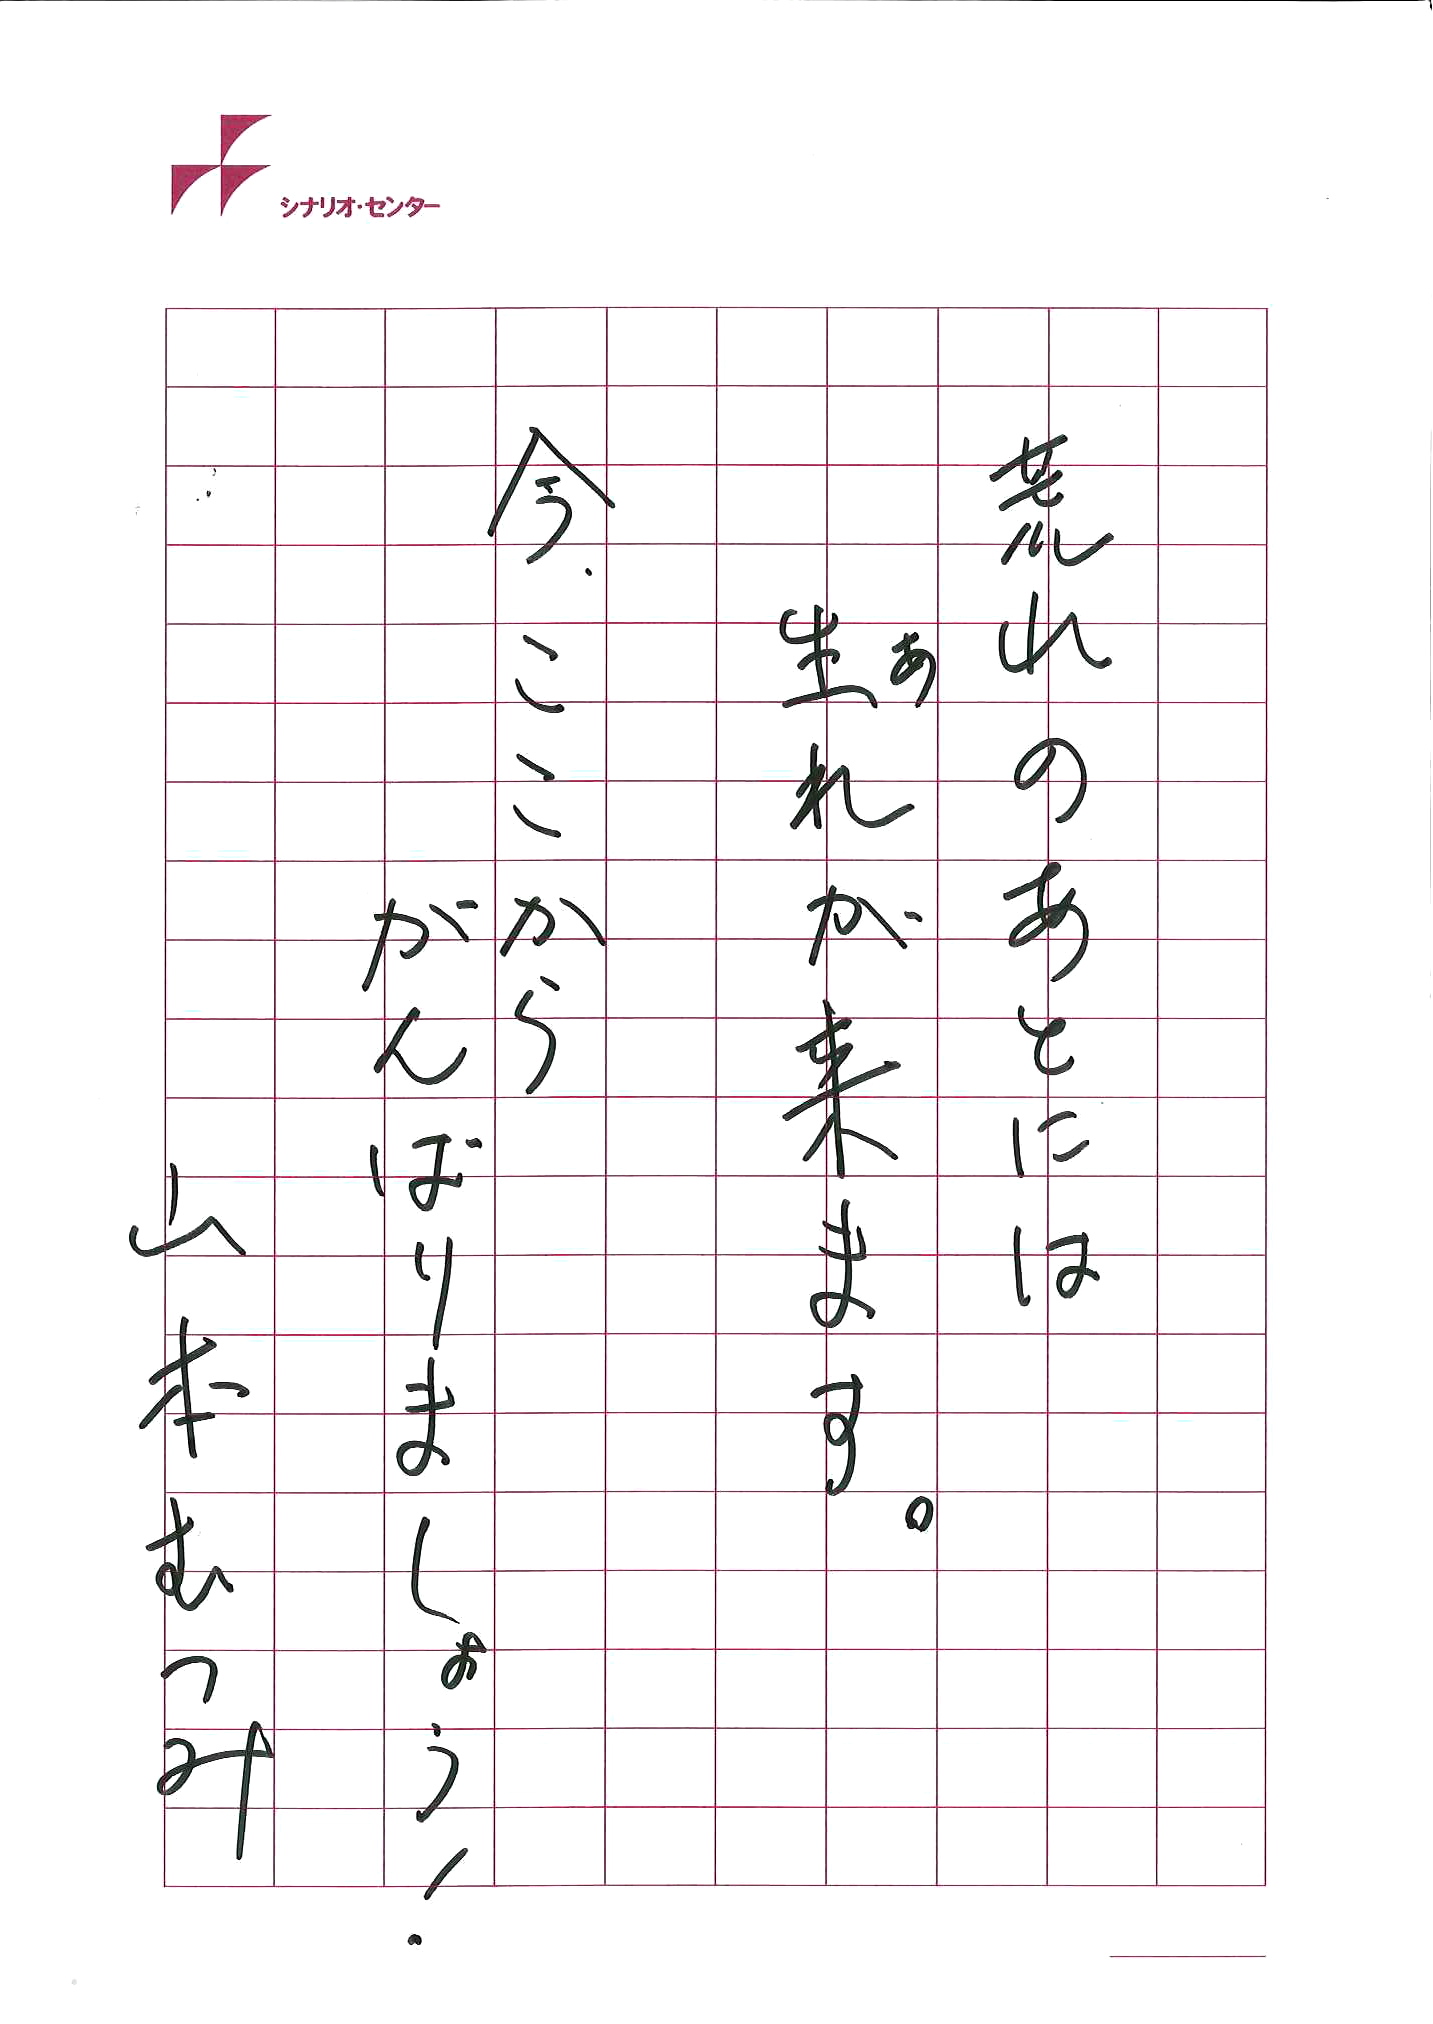 シナリオ・センター
荒れのあとには
生れが来ます。
あ
今、ここから
がんばりましょう!
山本むつみ